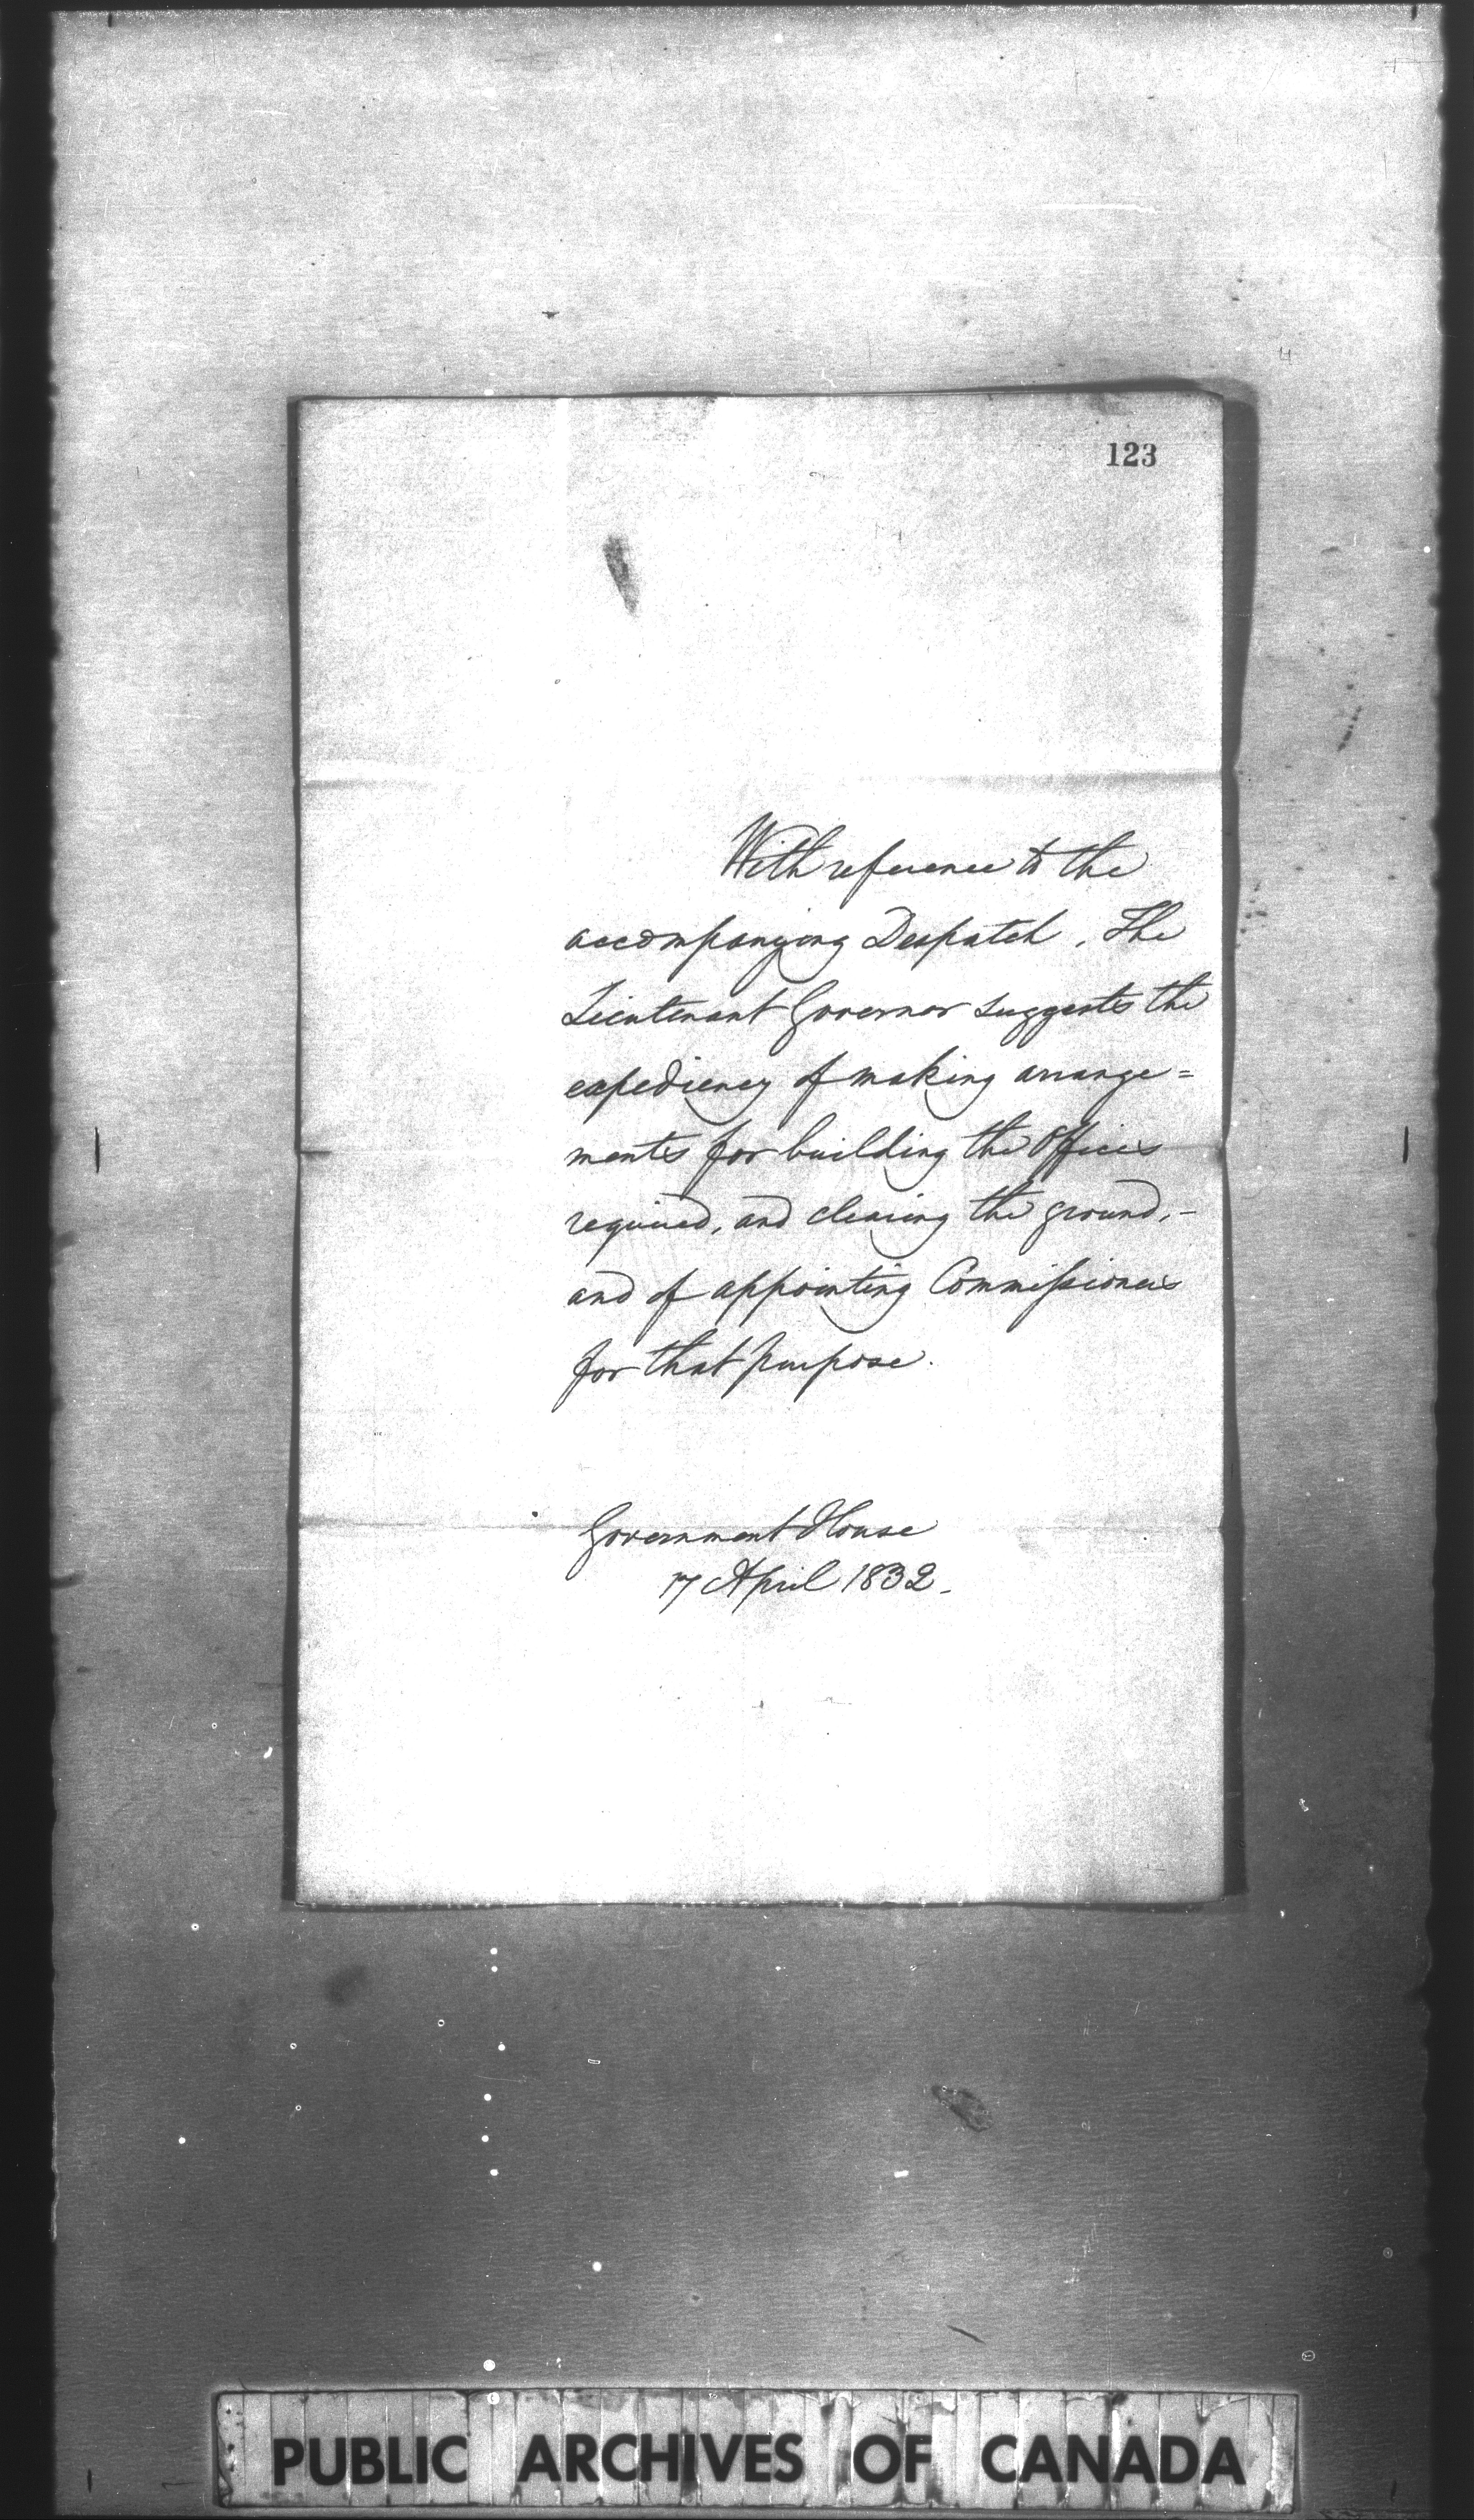 123
With reference to the
accompanying Despatch, The
Lieutenant Governor suggests the
expediency of making arrange=
ments for building the Offices
required, and clearing the ground,-
and of appointing Commissioners
for that purpose.
Government House
17 April 1832.
PUBLIC ARCHIVES OF CANADA